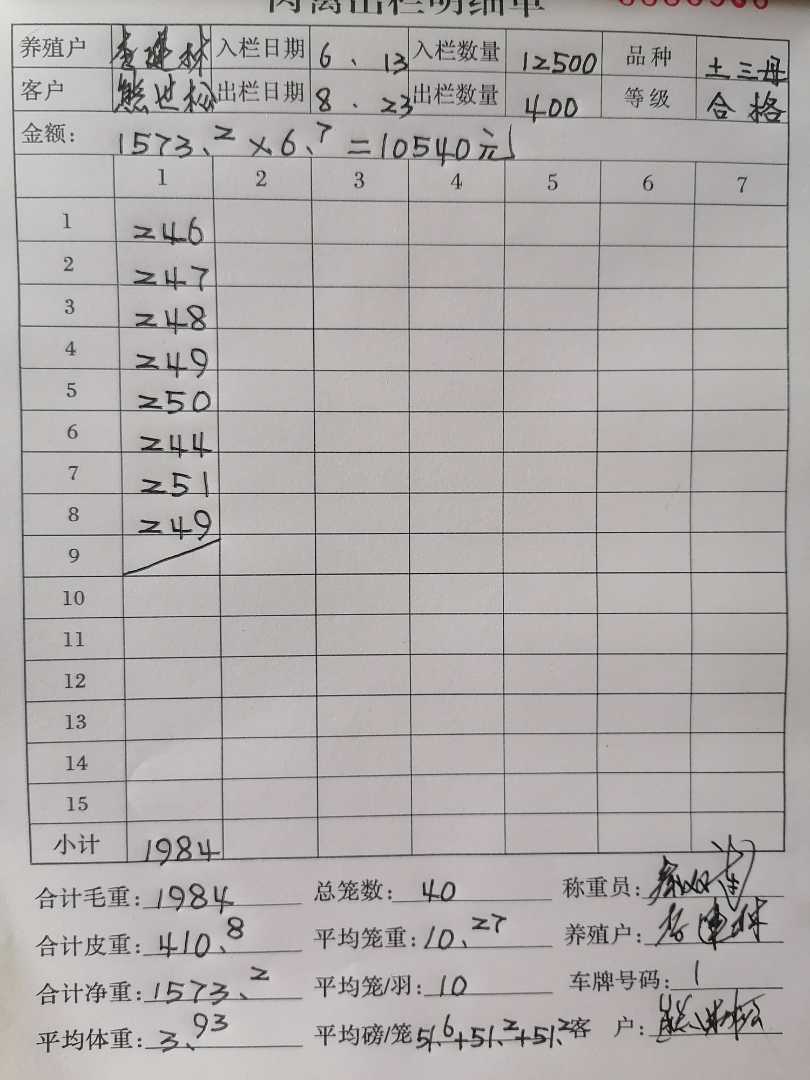 肉禽出栏明细单
养殖户 李建林 入栏日期 6、13 入栏数量 12500 品种 土三母
客户 熊世松 出栏日期 8.23 出栏数量 400 等级 合格
金额: 1573.2×6.7=10540元
1 2 3 4 5 6 7
1 246
2 247
3 248
4 249
5 250
6 244
7 251
8 249
9
10
11
12
13
14
15
小计 1984
合计毛重: 1984 总笼数: 40 称重员:
合计皮重: 410.8 平均笼重: 10.27 养殖户: 李建林
合计净重: 1573.2 平均笼/羽: 10 车牌号码: 1
平均体重: 3.93 平均磅/笼 51.6+51.2+51.2 客户: